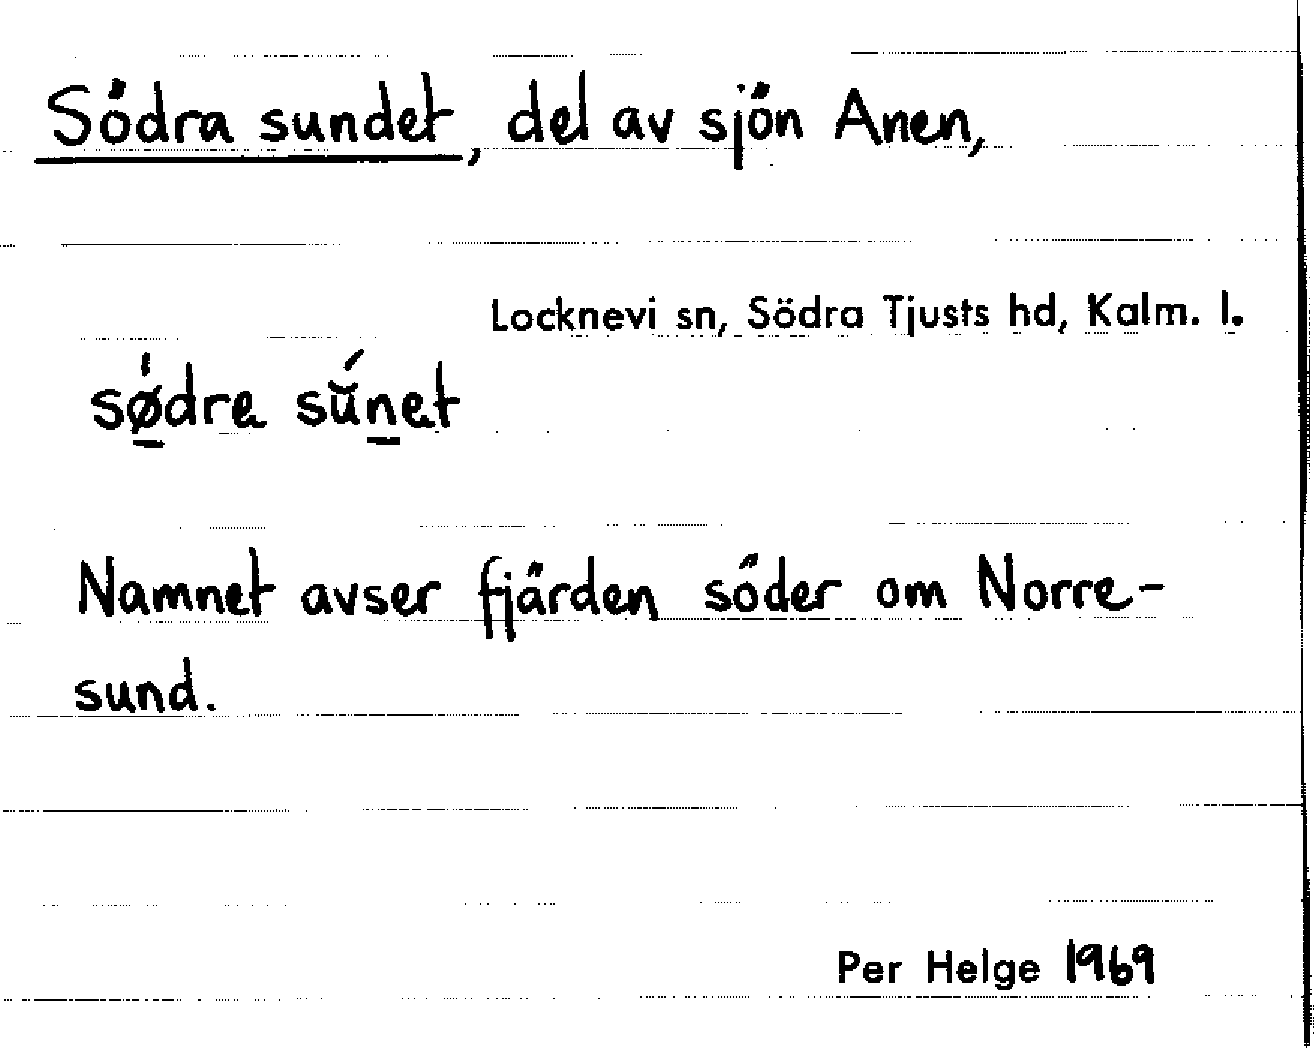 Södra sundet, del av sjön Anen,
Locknevi sn, Södra Tjusts hd, Kalm. l.
sǿ̱dre sŭ́ṉet
Namnet avser fjärden söder om Norre-
sund.
Per Helge 1969